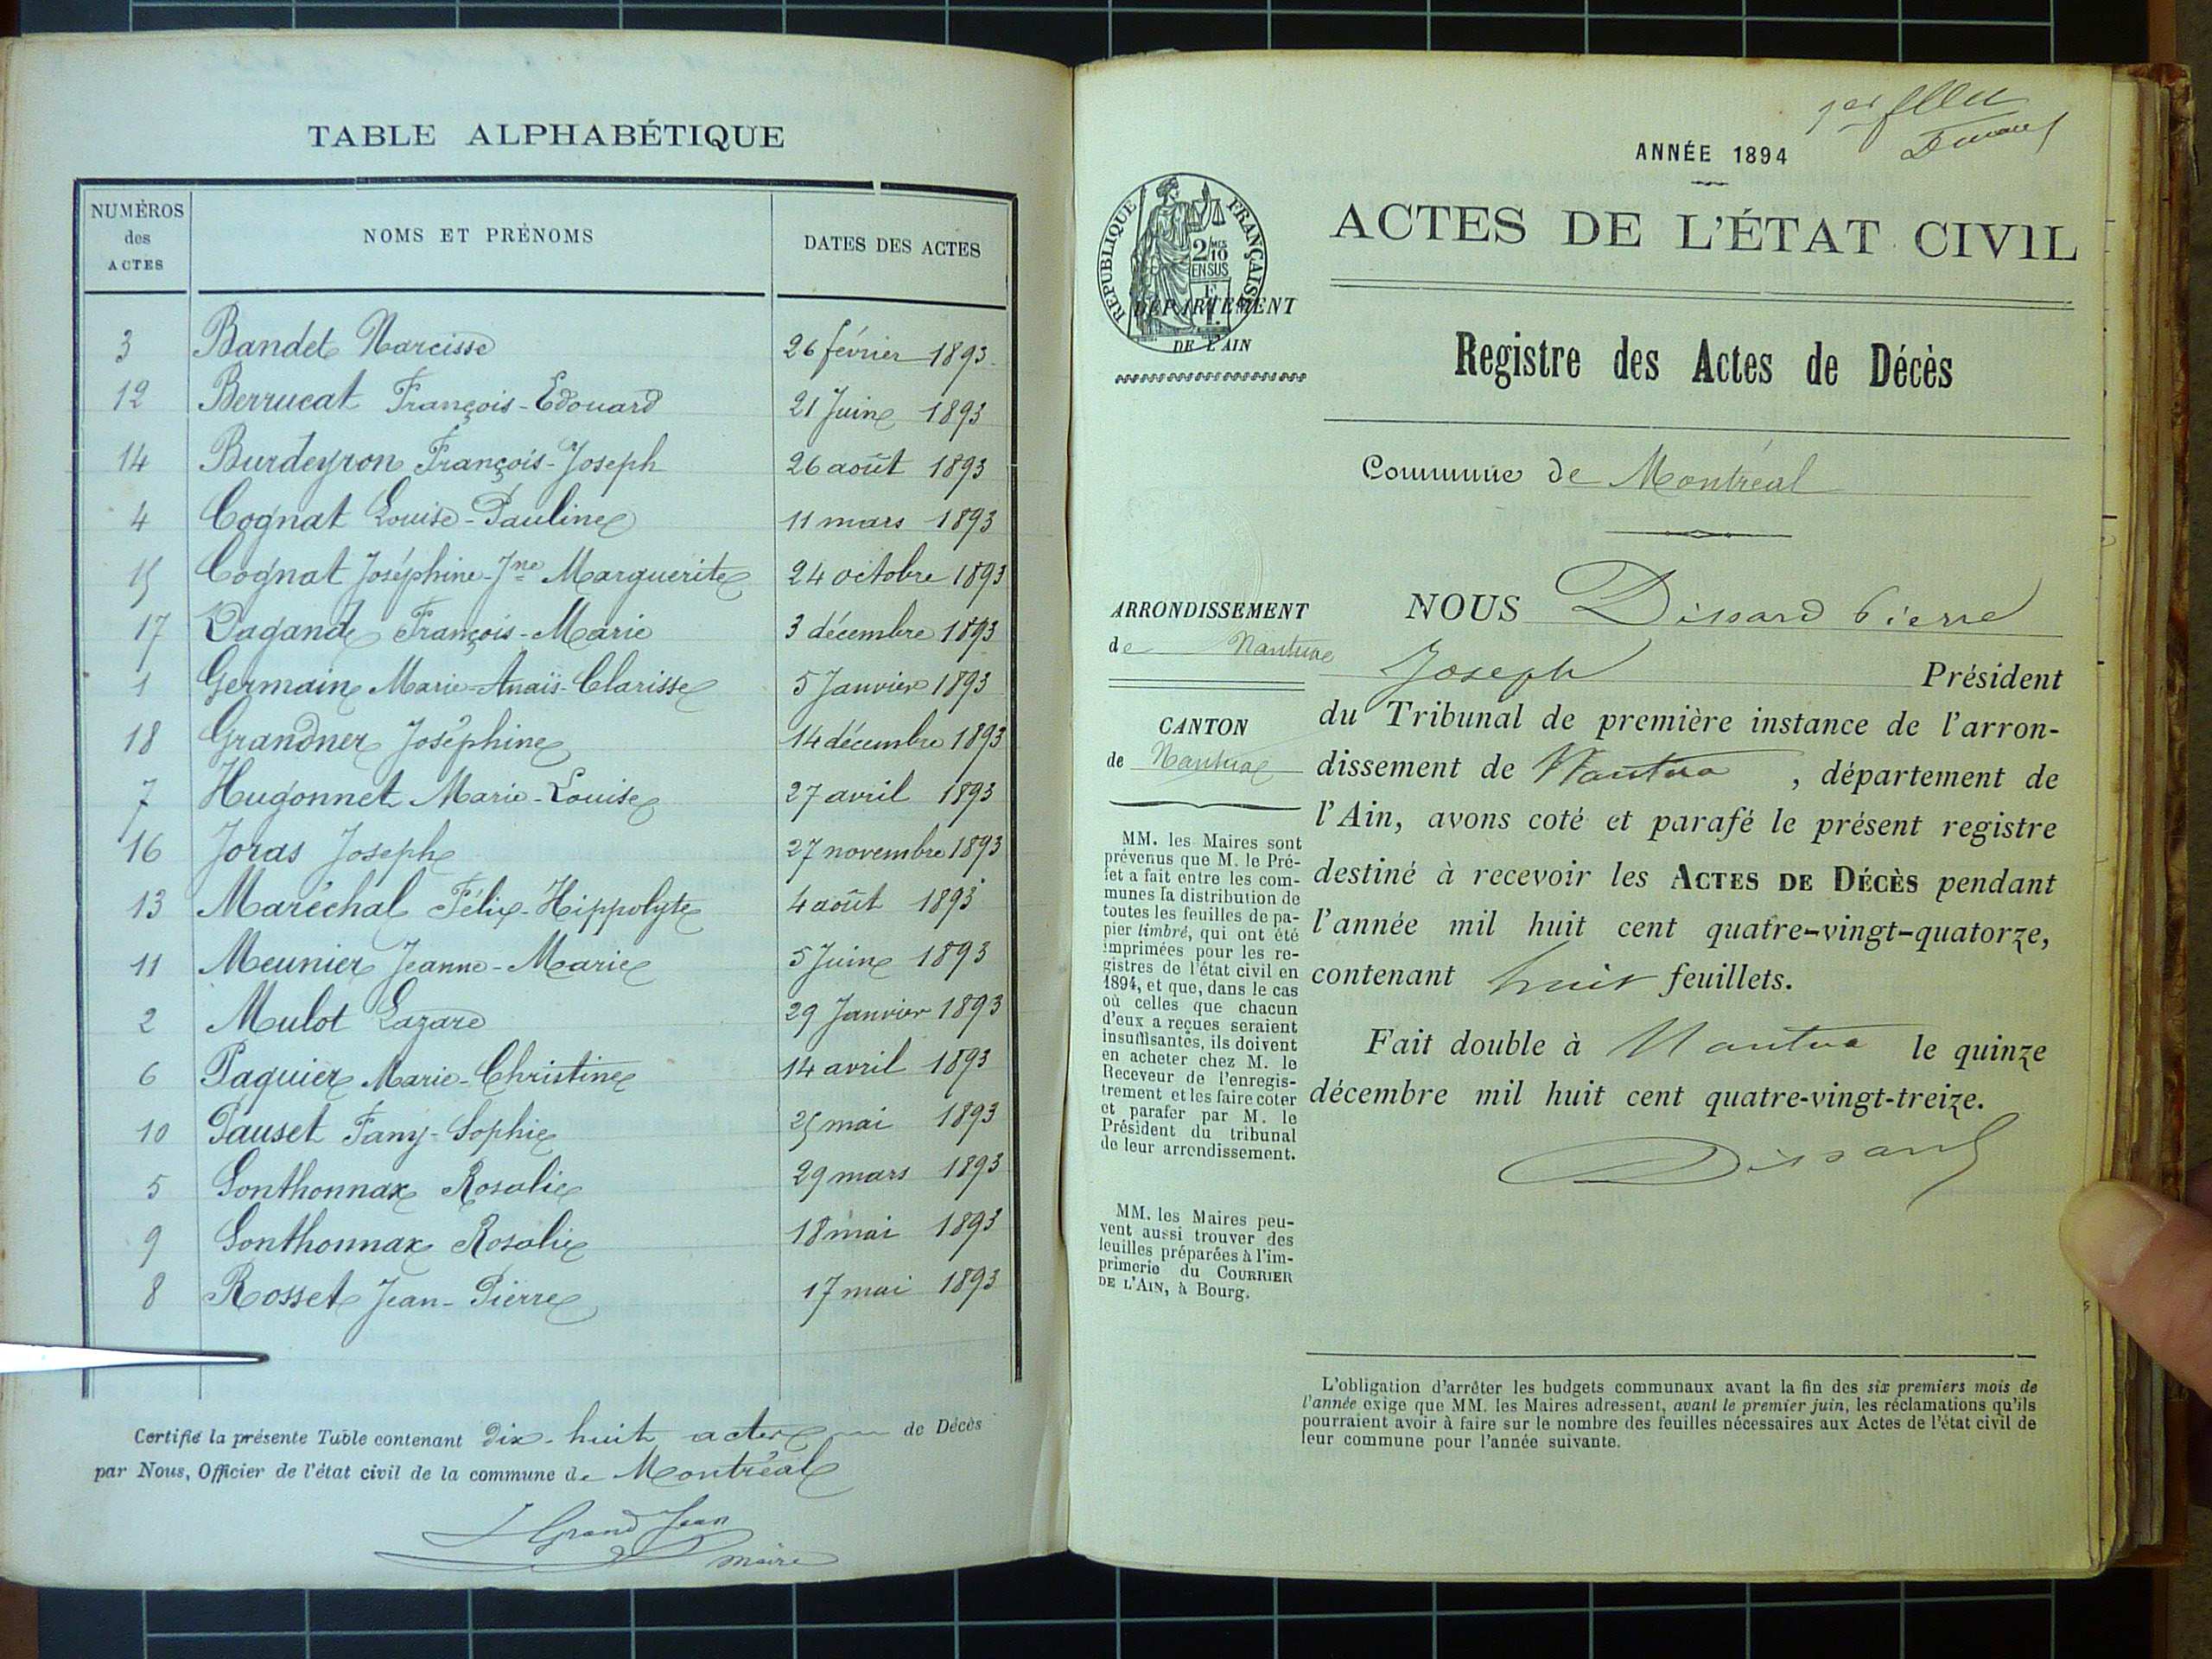 TABLE ALPHABÉTIQUE
NUMÉROS des ACTES NOMS ET PRÉNOMS DATES DES ACTES
3 Bandet Narcisse 26 février 1893
12 Berrucat François-Edouard 21 Juin 1893
14 Burdeyron François-Joseph 26 août 1893
4 Cognat Louise-Pauline 11 mars 1893
15 Cognat Joséphine-Jne Marguerite 24 octobre 1893
17 Dagand François-Marie 3 décembre 1893
1 Germain Marie-Anaïs-Clarisse 5 Janvier 1893
18 Grandner Joséphine 14 décembre 1893
7 Hugonnet Marie-Louise 27 avril 1893
16 Joras Joseph 27 novembre 1893
13 Maréchal Félix-Hippolyte 4 août 1893
11 Meunier Jeanne-Marie 5 Juin 1893
2 Mulot Lazare 29 Janvier 1893
6 Paquier Marie-Christine 14 avril 1893
10 Pauset Fany-Sophie 25 mai 1893
5 Sonthonnax Rosalie 29 mars 1893
9 Sonthonnax Rosalie 18 mai 1893
8 Rosset Jean-Pierre 17 mai 1893
Certifié la présente Table contenant dix-huit actes de Décès
par Nous, Officier de l'état civil de la commune de Montréal
Grand Jean
maire
1er
ANNÉE 1894
RÉPUBLIQUE FRANÇAISE
2/10 EN SUS
DÉPARTEMENT
DE L'AIN
ACTES DE L'ÉTAT CIVIL
Registre des Actes de Décès
Commune de Montréal
ARRONDISSEMENT
de Nantua
CANTON
de Nantua
MM. les Maires sont
prévenus que M. le Pré-
fet a fait entre les com-
munes la distribution de
toutes les feuilles de pa-
pier timbré, qui ont été
imprimées pour les re-
gistres de l'état civil en
1894, et que, dans le cas
où celles que chacun
d'eux a reçues seraient
insuffisantes, ils doivent
en acheter chez M. le
Receveur de l'enregis-
trement et les faire coter
et parafer par M. le
Président du tribunal
de leur arrondissement.
MM. les Maires peu-
vent aussi trouver des
feuilles préparées à l'im-
primerie du COURRIER
DE L'AIN, à Bourg.
NOUS Dissard Pierre
Joseph Président
du Tribunal de première instance de l'arron-
dissement de Nantua, département de
l'Ain, avons coté et parafé le présent registre
destiné à recevoir les ACTES DE DÉCÈS pendant
l'année mil huit cent quatre-vingt-quatorze,
contenant huit feuillets.
Fait double à Nantua le quinze
décembre mil huit cent quatre-vingt-treize.
Dissard
L'obligation d'arrêter les budgets communaux avant la fin des six premiers mois de
l'année exige que MM. les Maires adressent, avant le premier juin, les réclamations qu'ils
pourraient avoir à faire sur le nombre des feuilles nécessaires aux Actes de l'état civil de
leur commune pour l'année suivante.